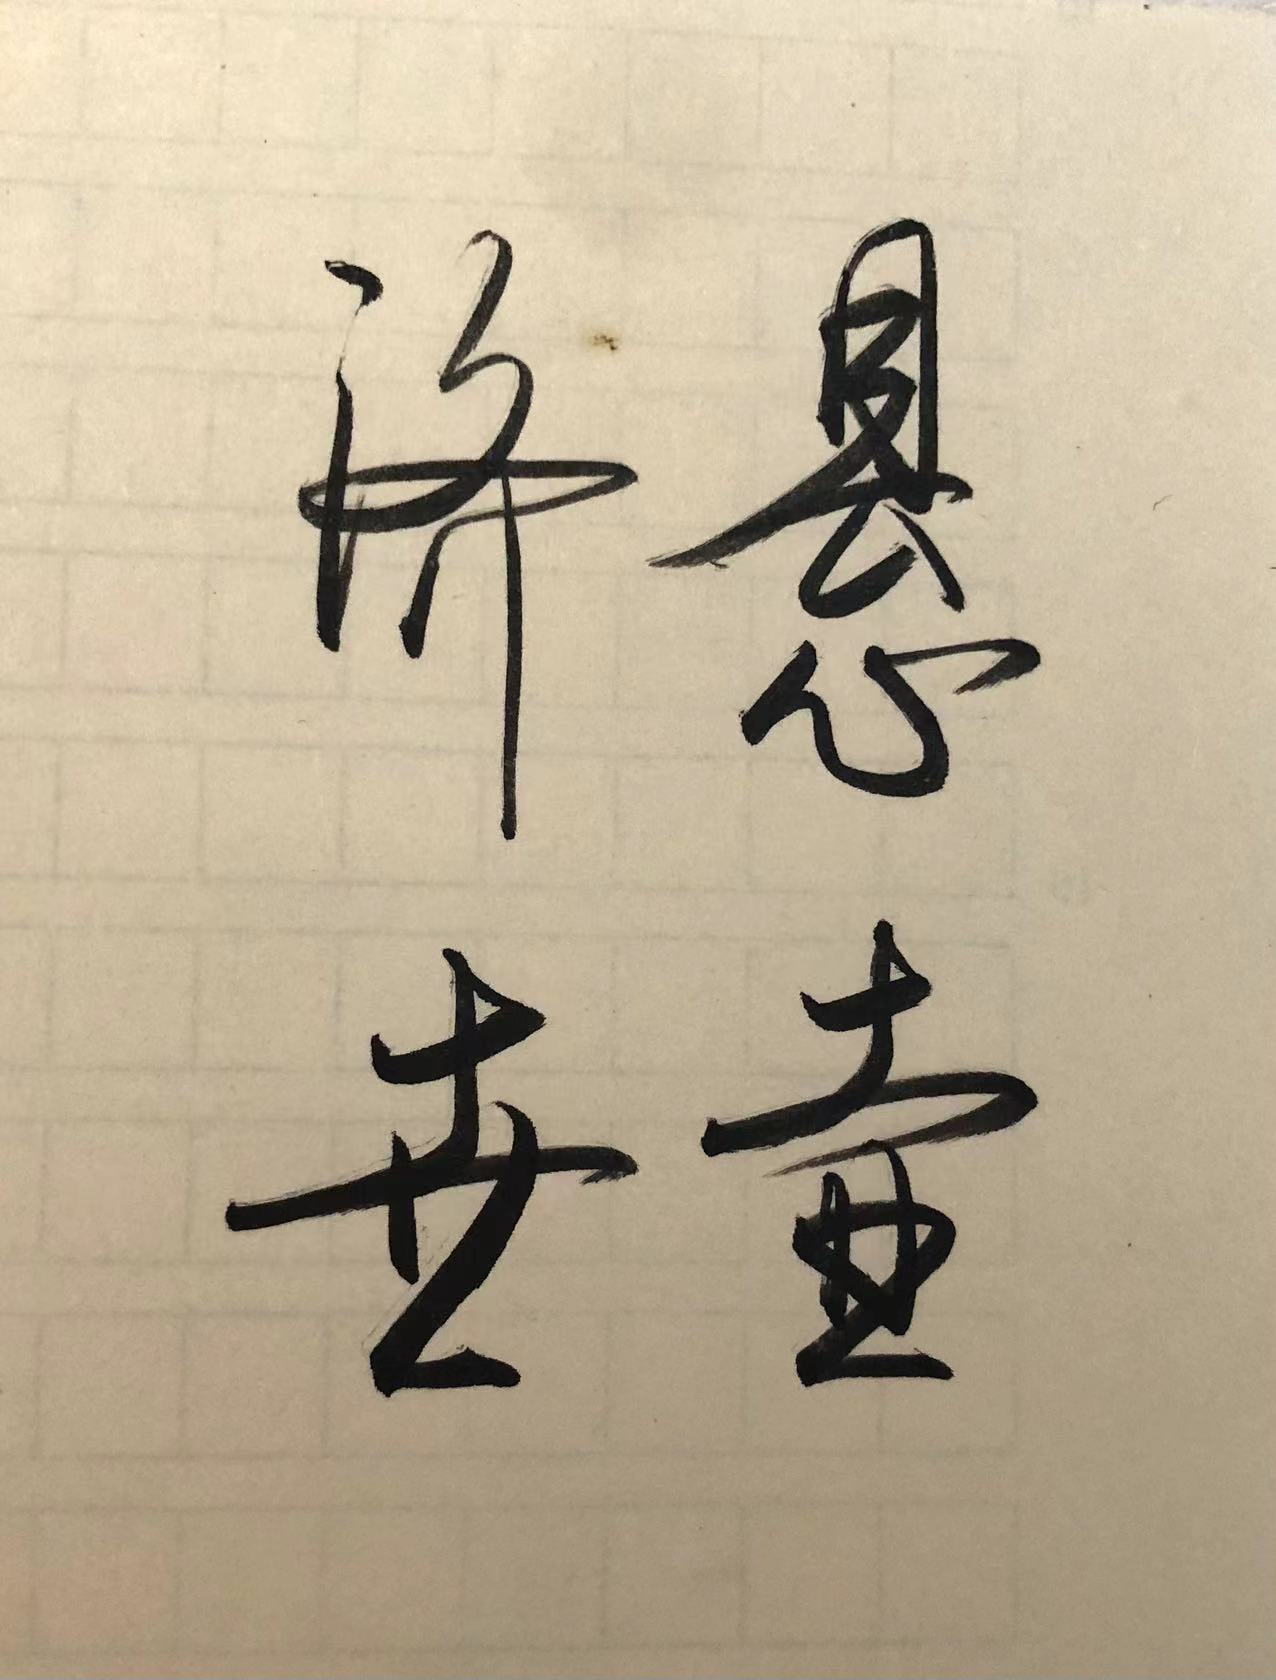 悬壶
济世